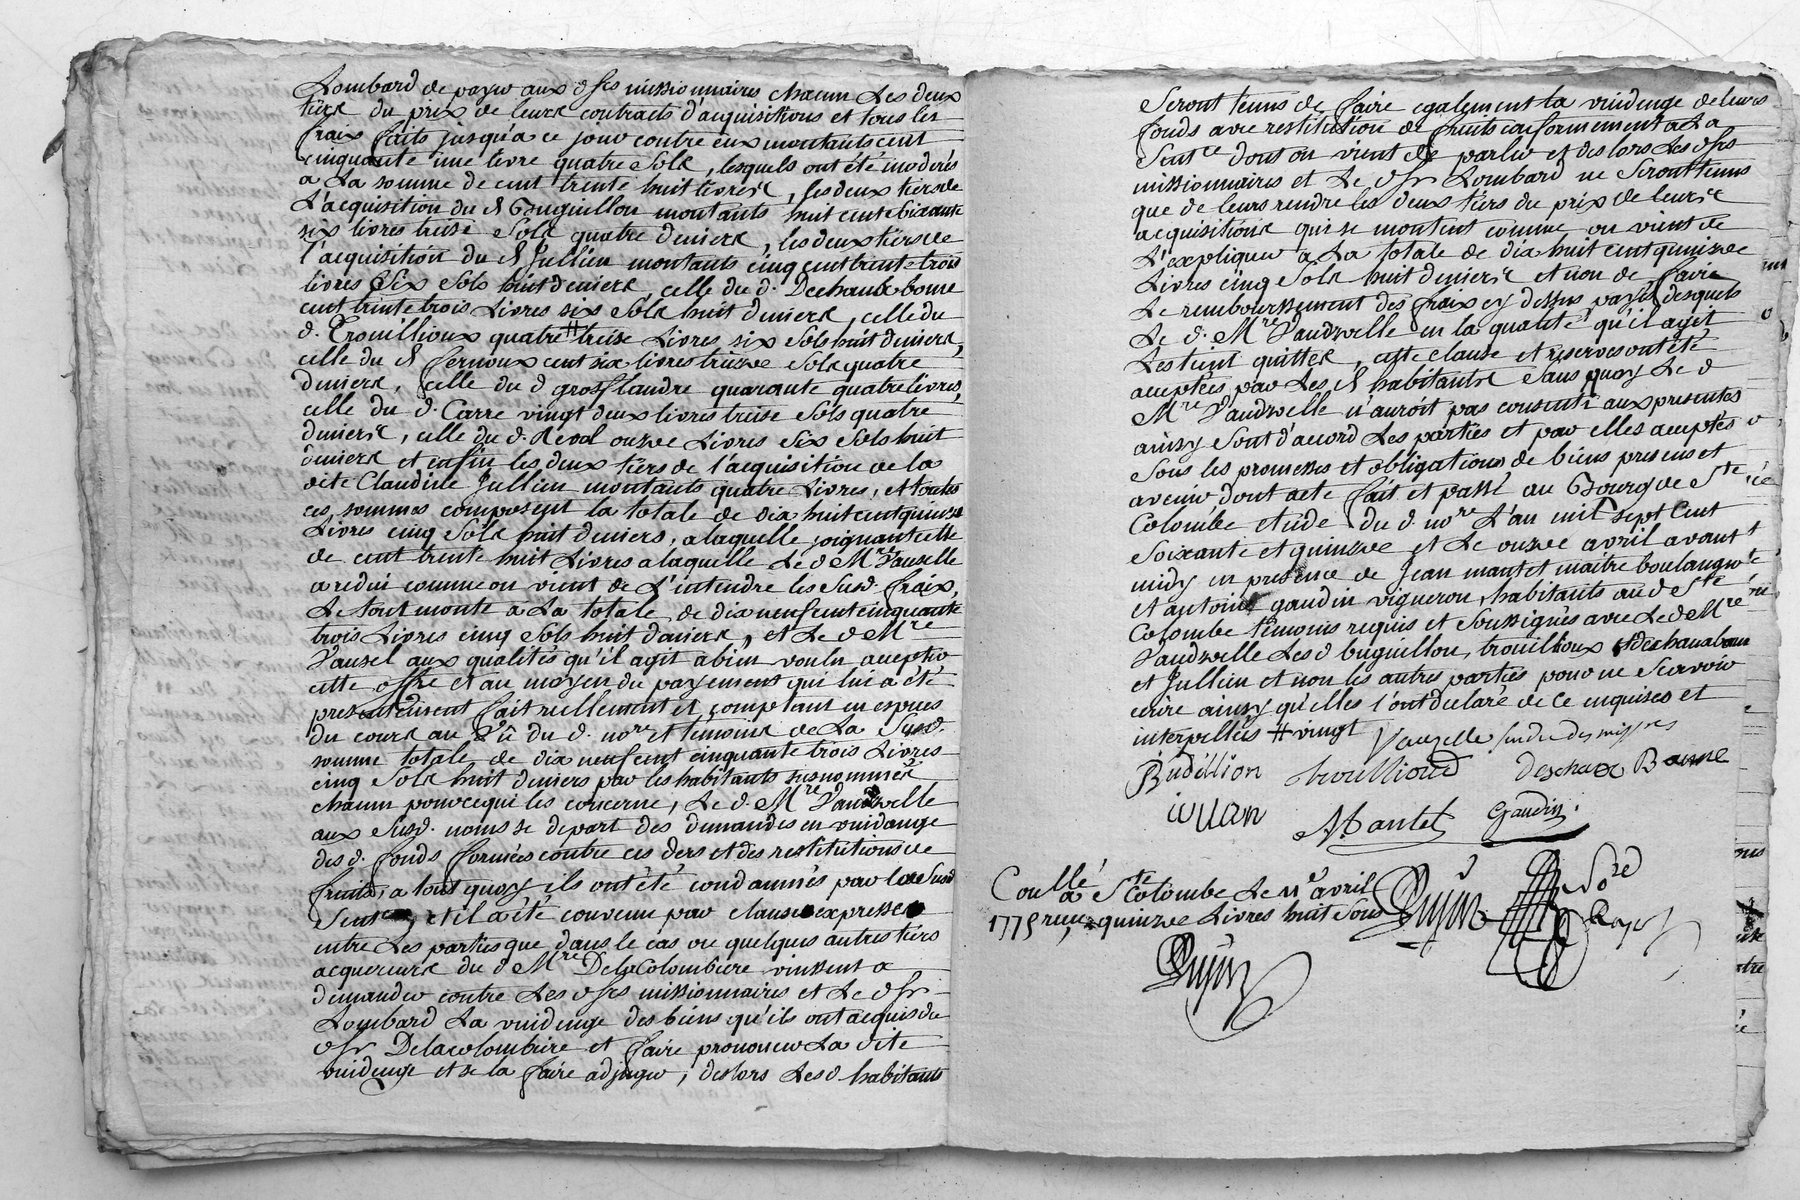 Lombard de payer aux d. srs missionnaires chacun Les deux
tiers du prix de leurs contracts d'acquisitions et tous les
fraix faits jusqu'a ce jour contre eux montants cent
cinquante une livre quatre Sols, lesquels ont été moderés
a La somme de cent trente huit livres, les deux tiers de
L'acquisition du d Buguillon montants huit cent soixante
six livres treise Sols quatre deniers, les deux tiers de
l'acquisition du d Jullien montants cinq cent trente trois
livres Six Sols huit deniers celle du d. Dechaux bonne
cent trinte trois Livres six Sols huit deniers, celle du
d. Trouillioux quatre # treise Livres six Sols huit deniers,
celle du d fernoux cent six livres treise Sols quatre
deniers, celle du d grosflandre quarante quatre livres,
celle du d. Carre vingt deux livres treise Sols quatre
deniers, celle du d. Reval onze Livres Six Sols huit
deniers et enfin les deux tiers de l'acquisition de la
dite Claudine Jullien montants quatre Livres, et toutes
ces sommes composent la totale de dix huit cent quinze
Livres cinq Sols huit deniers, a laquelle joignant celle
de cent trente huit Livres a laquelle Le d Mre Vauzelle
a reduit comme on vient de L'entendre les Susd. fraix,
Le tout monte à La totale de dix neuf cent cinquante
trois Livres cinq Sols huit deniers, et Le d Mre
Vauzel aux qualités qu'il agit a bien voulu accepter
cette offre et au moyen du payement qui lui a été
presentement fait reellement et comptant en espèces
du cours au vû du d. nore et témoins de La Susd.
somme totale de dix neuf cent cinquante trois Livres
cinq Sols huit deniers par les habitants susnommés
chacun pour ce qui les concerne, Le d. Mre Vaudzelle
aux Susd. noms se depart des demandes en vuidange
des d. fonds formées contre ces ders et des restitutions de
fruits, a tout quoy ils ont été condamnés par la Susd
Sentce, et il a été convenu par clause expresse
entre Les parties que dans le cas ou quelques autres tiers
acquereurs du d Mre De la Colombiere vinssent a
demander contre Les d srs missionnaires et Le d sr
Lombard La vuidenge des biens qu'ils ont acquis du
d sr Delacolombiere et faire prononcer La dite
vuidenge et se la faire adjuger, deslors Les d. habitants
Seront tenus de faire egalement la vuidenge de leurs
fonds avec restitution de fruits conformement a La
Sentce dont on vient de parler et des lors Les d srs
missionnaires et Le d sr Lombard ne Seront tenus
que de leurs rendre les deux tiers du prix de leurs
acquisitions qui se montent comme on vient de
L'expliquer a La totale de dix huit cent quinze
Livres cinq Sols huit deniers et non de faire
Le remboursement des fraix cy dessus payés desquels
Le d. Mre Vaudzelle en la qualité qu'il agit
Les tient quittes, cette clause et réserves ont été
acceptées par Les d habitants Sans quoy Le d
Mre Vaudzelle n'auroit pas consenti aux presentes
ainsy Sont d'acord Les parties et par elles acceptés
Sous les promesses et obligations de biens presens et
avenir dont acte fait et passé au Bourg de Ste
Colombe etude du d. nore L'an mil sept cent
Soixante et quinze et Le onze avril avant
midy en presence de Jean mantet maitre boulanger
et antoine gaudin vigneron, habitants aud Ste
Colombe témoins requis et Soussignés avec Led Mre
Vaudzelle Les d buguillon, trouillioux et dechauxbonne
et Jullien et non les autres parties pour ne Scavoir
ecrire ainsy qu'elles l'ont declaré de ce enquises et
interpellées # vingt Vauzelle sindic des missres
Budillion trouillioud deschaux Bonne
iullian AMantet Gaudin
Coullé a Ste Colombe Le 11e avril
1775 reçu quinze Livres huit Sous Dujin Nore Royal
Dujin